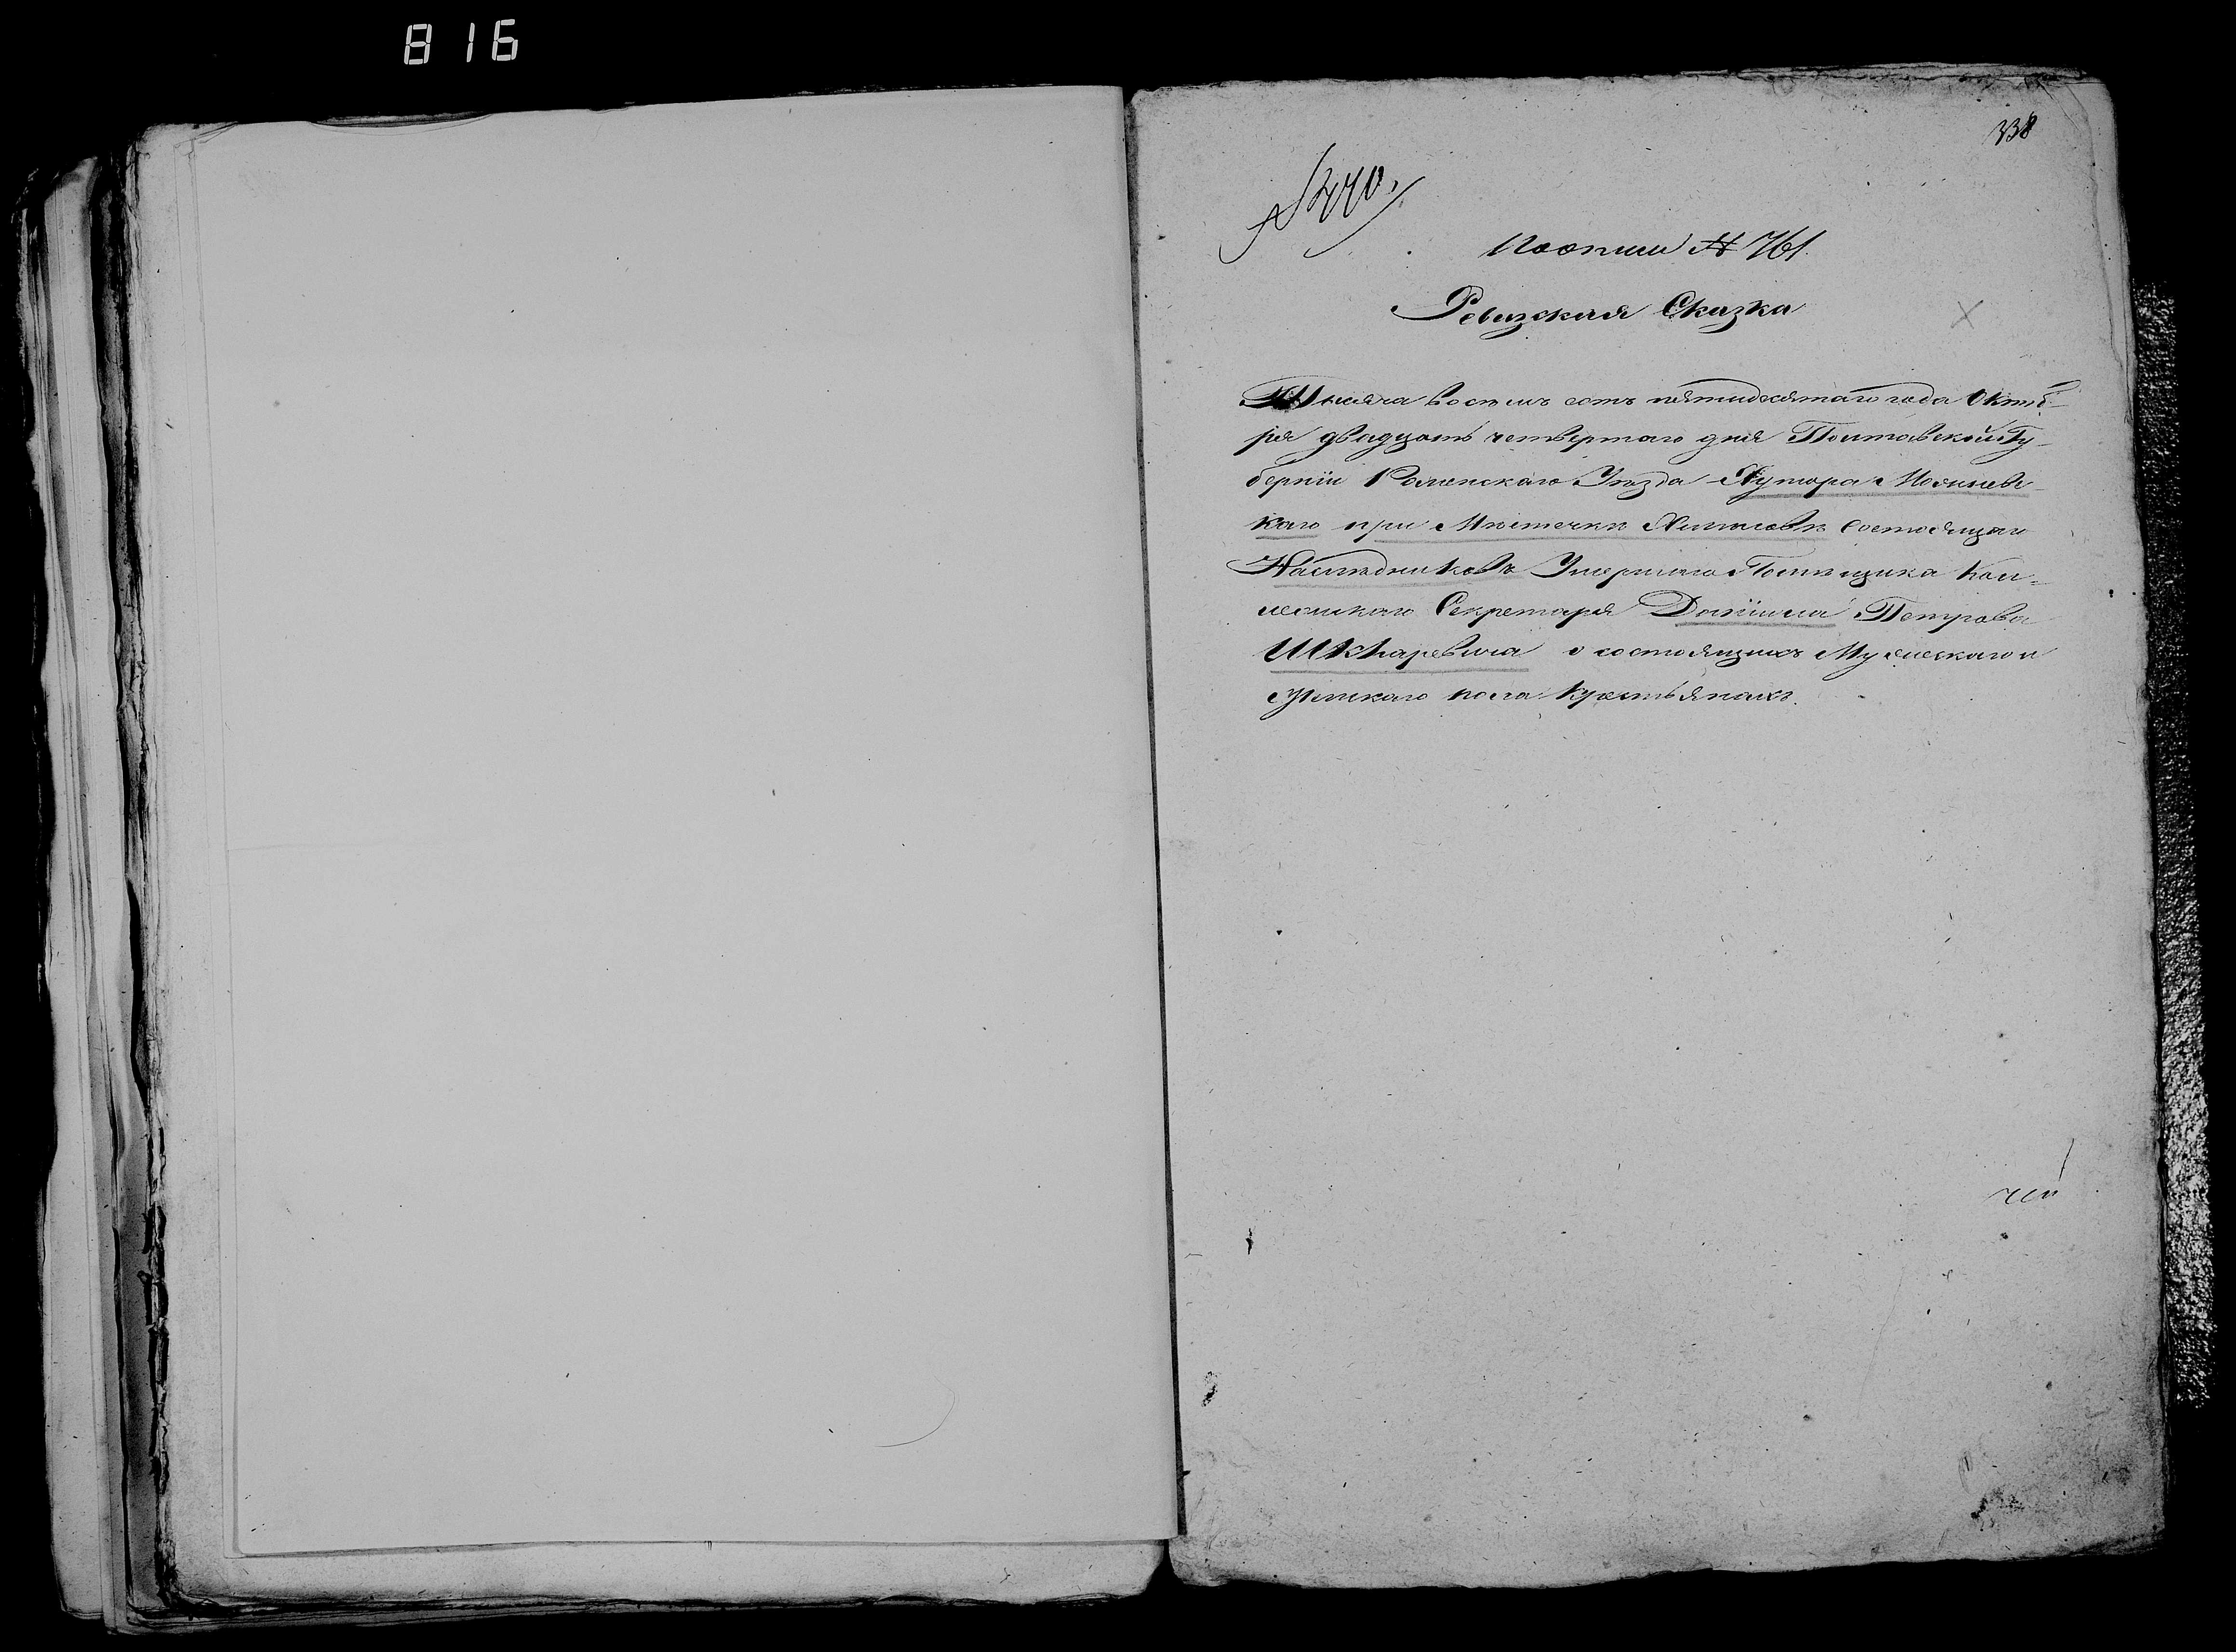 816
338
№ 240.
По описи № 761.
Ревизская Сказка
Тысяча восемь сотъ пятидесятаго года Октяб-
ря двадцать четвертаго дня Полтавской Гу-
берніи Роменскаго Уѣзда Хутора
каго при Мѣстечкѣ состоящаго
Наслѣдниковъ Умершаго Помѣщика Кол-
лежскаго Секретаря Даніила Петрова
Шкляревича о состоящихъ Мужескаго и
Женскаго пола Крестьянахъ.